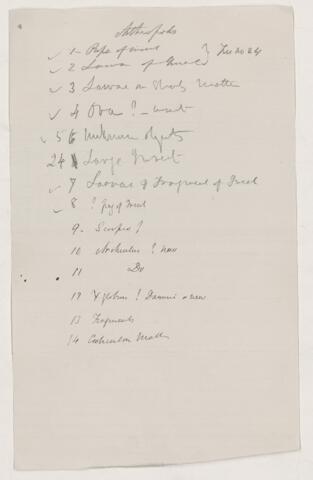 Arthropods
✓ 1 - Pupa of insect } Fig no 24
✓ 2 Larva of Insect
✓ 3 Larvae on Woody matter
✓ 4 Ova ? - insect
✓ 5 6 Unknown objects
24 Large Insect
✓ 7 Larvae & Fragment of Insect
✓ 8 ? Leg of Insect
9 - Scorpio ?
10 Archeulus ? new
11 Do
12 Xylobius ? Dawsoni or new
13 Fragments
14 Matter